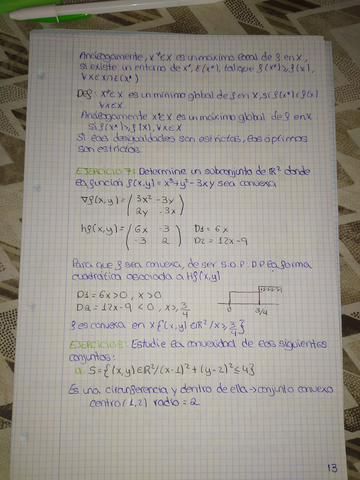 Análogamente, x*∈X es un máximo local de f en X,
si existe un entorno de x*, E(x*), tal que f(x*)≥f(x),
∀x∈X∩E(x*)
Def: x*∈X es un mínimo global de f en X, si f(x*)≤f(x)
∀x∈X
Análogamente x*∈X es un máximo global de f en X
si f(x*)≥f(x), ∀x∈X
Si las desigualdades son estrictas, los óptimos
son estrictos
EJERCICIO 7: Determine un subconjunto de ℝ² donde
la función f(x,y)=x³+y²-3xy sea convexa
∇f(x,y)=(3x² -3y
2y -3x)
Hf(x,y)=(6x -3
-3 2) D1=6x
D2=12x-9
Para que f sea convexa, de ser S.D.P. D.P la forma
cuadrática asociada a Hf(x,y)
D1=6x>0, x>0
D2=12x-9<0, x≥3/4
0 3/4
f es convexa en X{(x,y)∈ℝ²/x≥3/4}
EJERCICIO 8: Estudie la convexidad de los siguientes
conjuntos:
a. S={(x,y)∈ℝ²/(x-1)²+(y-2)²≤4}
Es una circunferencia y dentro de ella→conjunto convexo
centro(1,2) radio=2
13